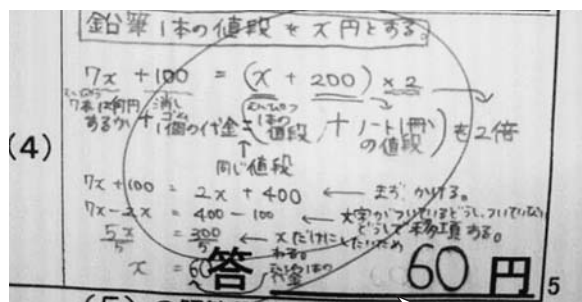 鉛筆1本の値段をx円とする。
7x + 100 = (x + 200) × 2
えんぴつ
7本は何円
あるか + 消しゴム1個の代金 = (えんぴつ1本の値段 + ノート1冊の値段) を2倍
同じ値段
(4)
7x + 100 = 2x + 400 ← まず、かける。
7x - 2x = 400 - 100 ← 文字がついているどうし、ついていないどうしで移項する。
5x/5 = 300/5 ← xだけにしたいため
わる。
x = 60
答 60円
5